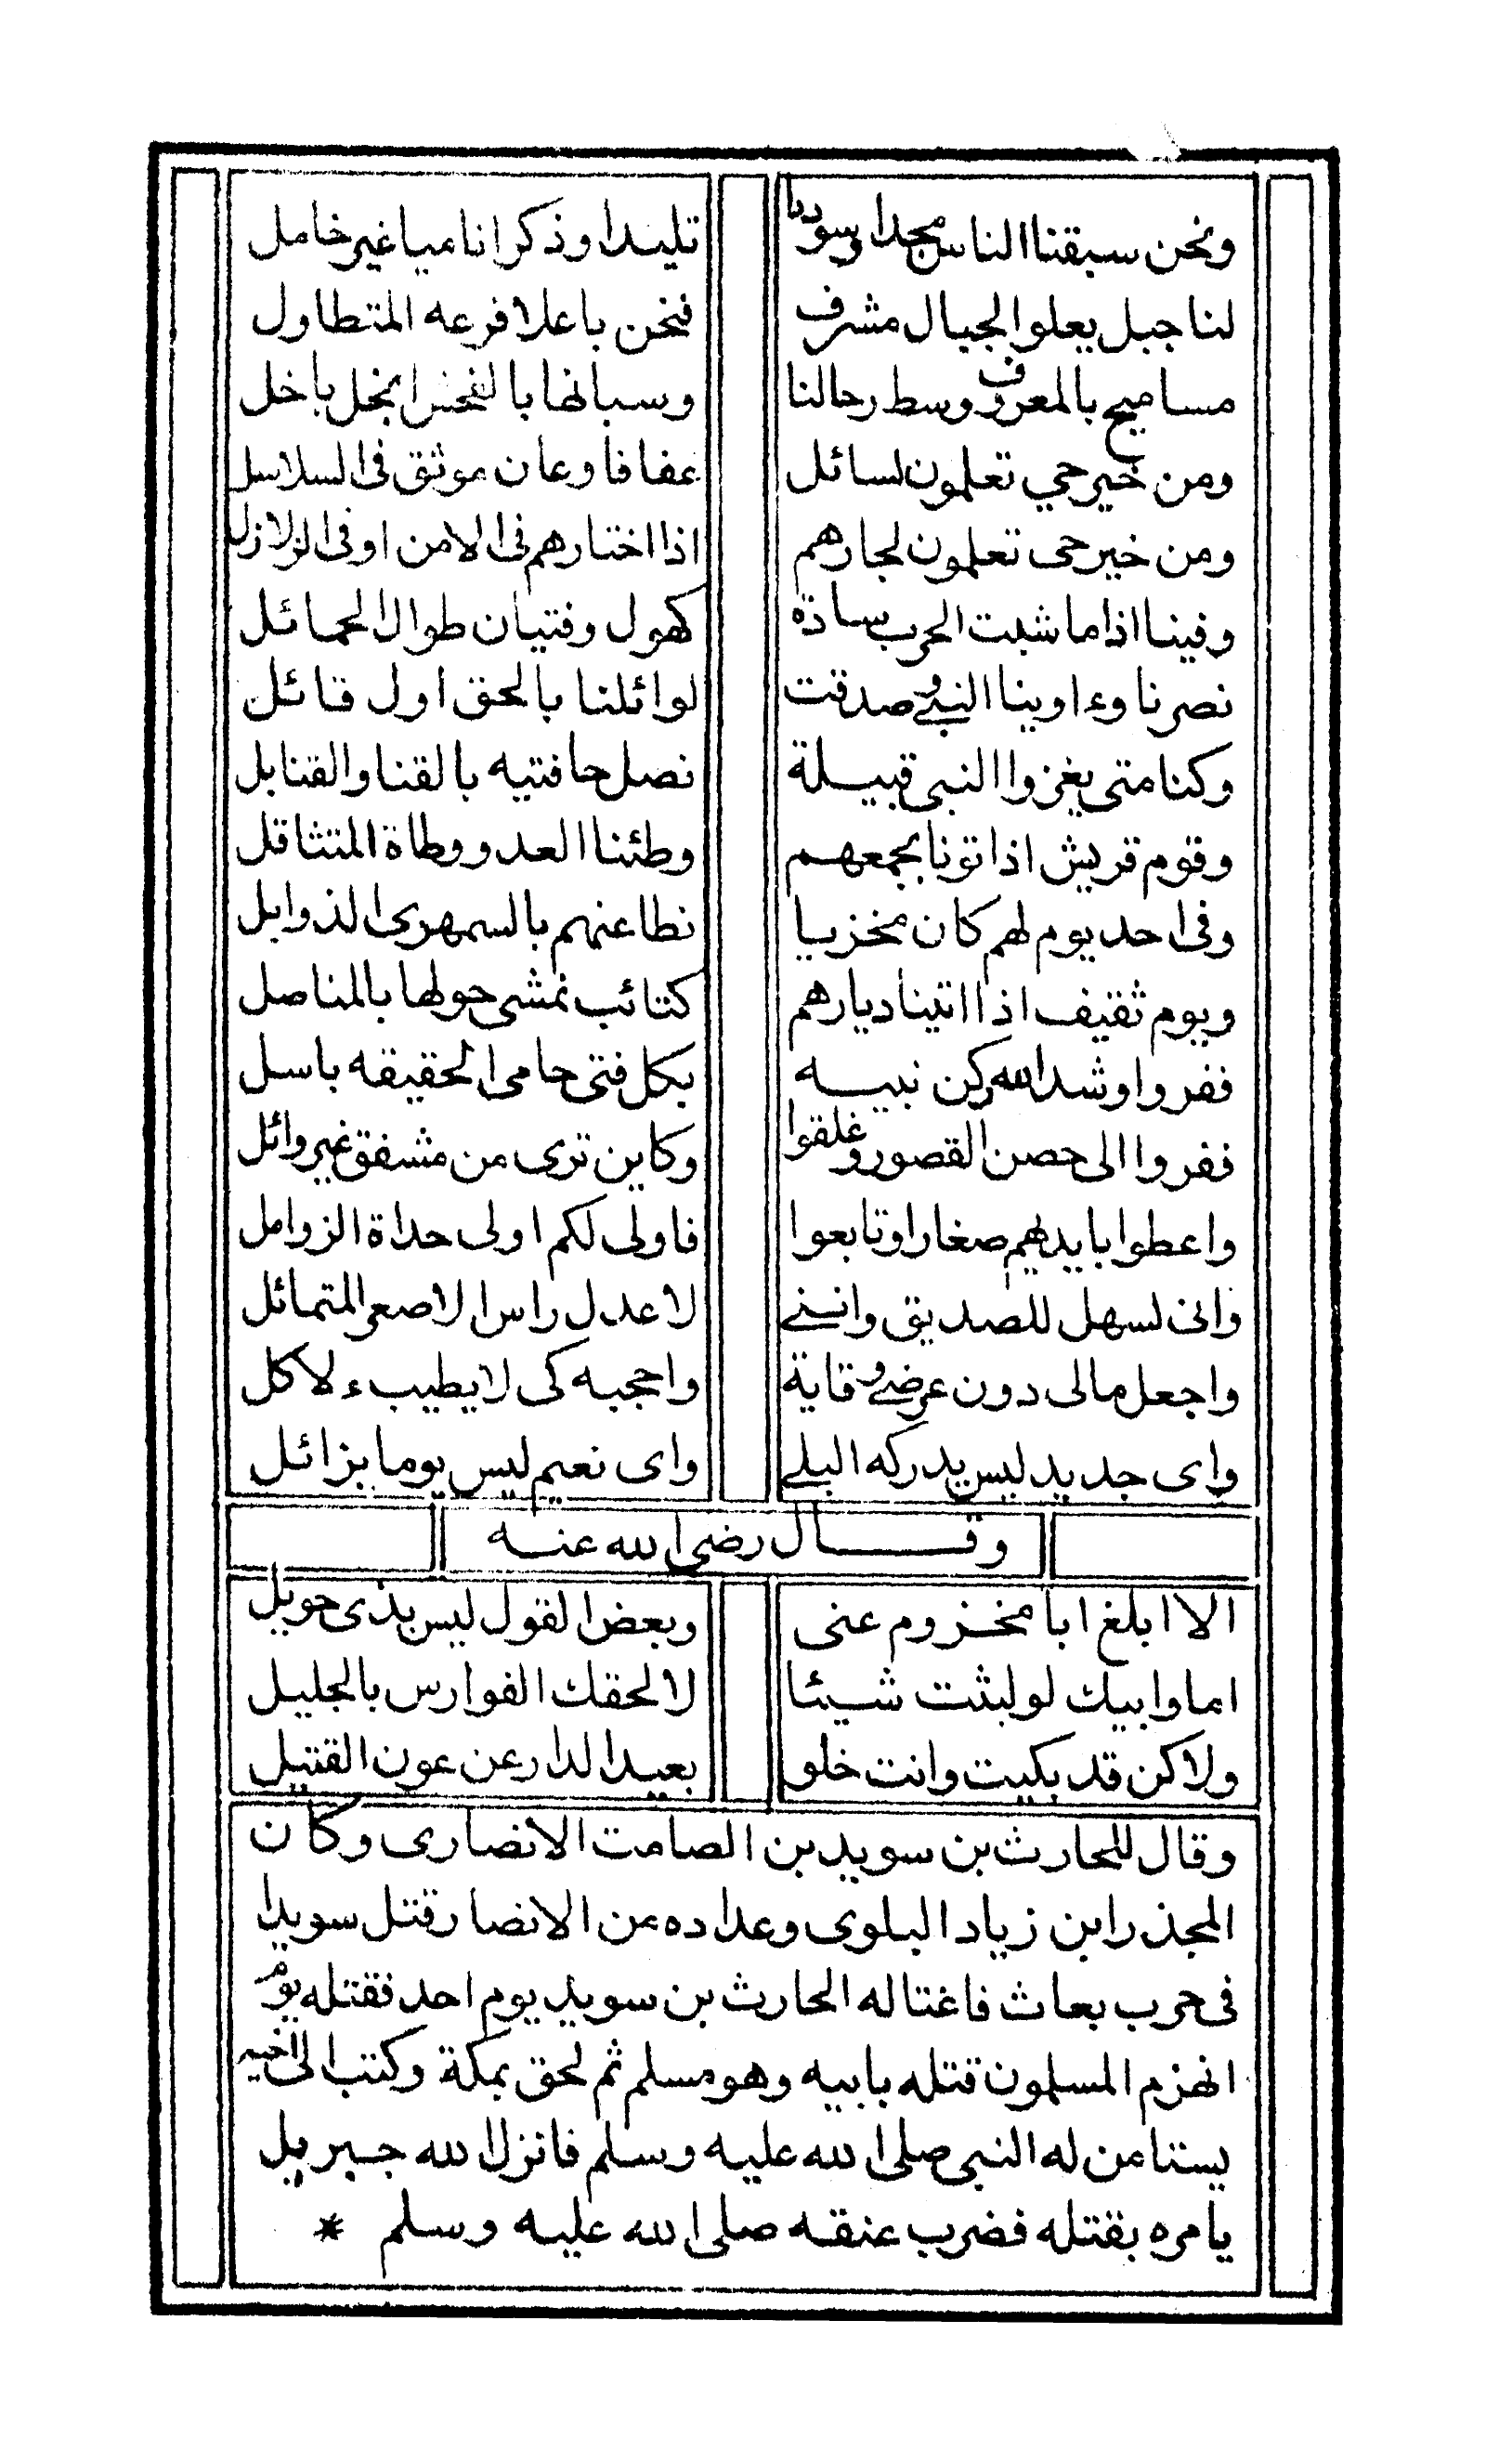 ونحن سبقنا الناس مجدا وسوددا تليدا وذكرا ناميا غير خامل
لنا جبل يعلوا الجبال مشرف فنحن باعلا فرعه المتطاول
مساميح بالمعروف وسط رحالنا وسباننا بالفحش ابخل باخل
ومن خير حي تعلمون لسائل عفافا وعان موثق فى السلاسل
ومن خير حى تعلمون لجارهم اذا اختارهم فى الامن او فى الزلازل
وفينا اذا ما شبت الحرب سادة كهول وفتيان طوال الحمائل
نصرنا وءاوينا النبى وصدقت لوائلنا بالحق اول قائل
وكنا متى يغزوا النبى قبيلة نصل حافتيه بالقنا والقنابل
وقوم قريش اذ اتونا بجمعهم وطئنا العدو وطاة المتثاقل
وفى احد يوم لهم كان مخزيا نطاعنهم بالسمهرى الذوابل
ويوم ثقيف اذا اتينا ديارهم كتائب نمشى حولها بالمناصل
ففروا وشد الله ركن نبيه بكل فتى حامى الحقيقه باسل
ففروا الى حصن القصور وغلقوا وكاين ترى من مشفق غير وائل
واعطوا بايديهم صغارا وتابعوا فاولى لكم اولى حداة الزوامل
وانى لسهل للصديق واننى لاعدل راس الاصعر المتمائل
واجعل مالى دون عرضى وقاية واحجبه كى لا يطيب ءلاكل
واى جديد ليس يدركه البلى واى نعيم ليس يوما بزائل
وقال رضى الله عنه
الا ابلغ ابا مخزوم عنى وبعض القول ليس بذى حويل
اما وابيك لو لبثت شيئا لالحقك الفوارس بالجليل
ولاكن قد بكيت وانت خلو بعيد الدار عن عون القتيل
وقال للحارث بن سويد بن الصامت الانصارى وكان
المجذر ابن زياد البلوى وعداده من الانصار قتل سويدا
فى حرب بعاث فاغتاله الحارث بن سويد يوم احد فقتله يوم
انهزم المسلمون قتله بابيه وهو مسلم ثم لحق بمكة وكتب الى اخيه
يستامن له النبى صلى الله عليه وسلم فانزل الله جبريل
يامره بقتله فضرب عنقه صلى الله عليه وسلم *